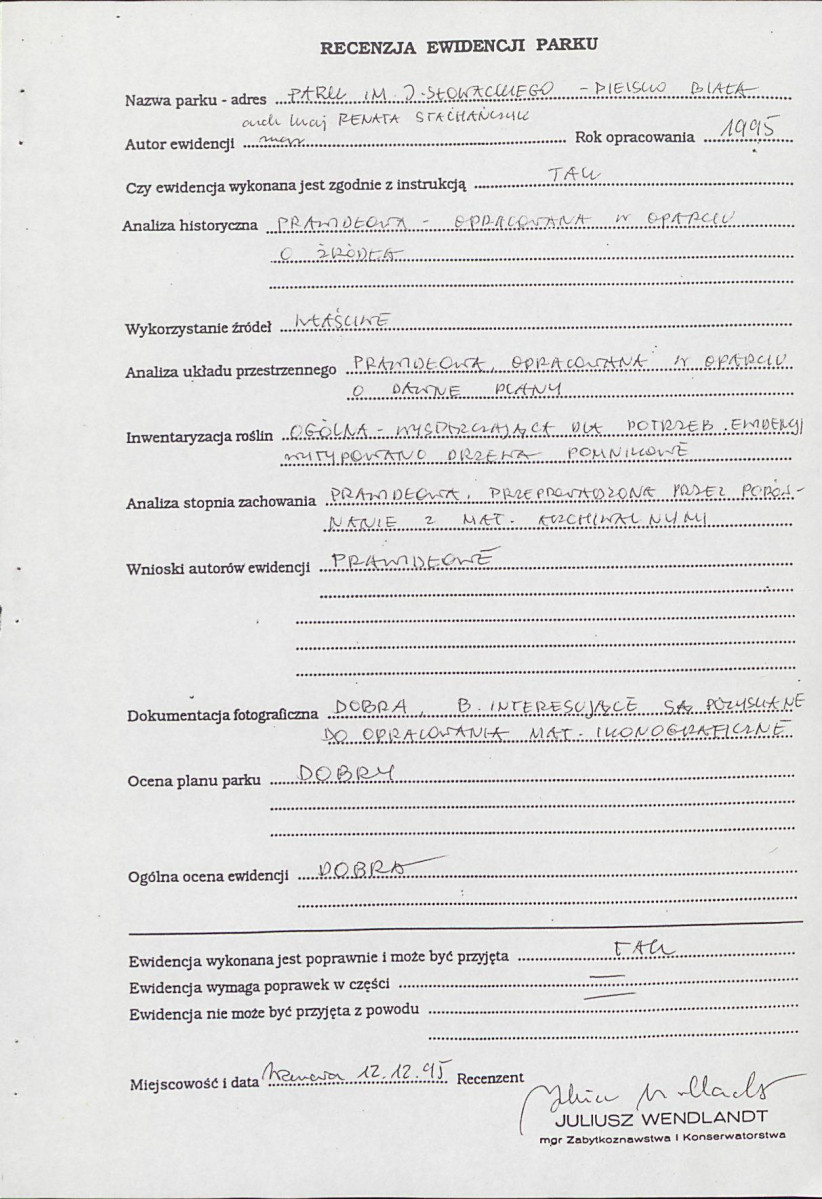 RECENZJA EWIDENCJI PARKU
Nazwa parku - adres PARK IM. J. SŁOWACKIEGO - BIELSKO BIAŁA
RENATA STACHAŃCZYK
Autor ewidencji mgr Rok opracowania 1995
Czy ewidencja wykonana jest zgodnie z instrukcją TAK
Analiza historyczna PRAWIDŁOWA - OPRACOWANA W OPARCIU
O ŹRÓDŁA
Wykorzystanie źródeł WŁAŚCIWE
Analiza układu przestrzennego PRAWIDŁOWA, OPRACOWANA W OPARCIU
O DAWNE PLANY
Inwentaryzacja roślin OGÓLNA - WYSTARCZAJĄCA DLA POTRZEB EWIDENCJI
WYTYPOWANO DRZEWA POMNIKOWE
Analiza stopnia zachowania PRAWIDŁOWA, PRZEPROWADZONA PRZEZ PORÓW-
NANIE Z MAT. ARCHIWALNYMI
Wnioski autorów ewidencji PRAWIDŁOWE
Dokumentacja fotograficzna DOBRA, B. INTERESUJĄCE SĄ POZYSKANE
DO OPRACOWANIA MAT. IKONOGRAFICZNE
Ocena planu parku DOBRY
Ogólna ocena ewidencji DOBRA
Ewidencja wykonana jest poprawnie i może być przyjęta TAK
Ewidencja wymaga poprawek w części
Ewidencja nie może być przyjęta z powodu
Miejscowość i data 12.12.95 Recenzent
JULIUSZ WENDLANDT
mgr Zabytkoznawstwa i Konserwatorstwa